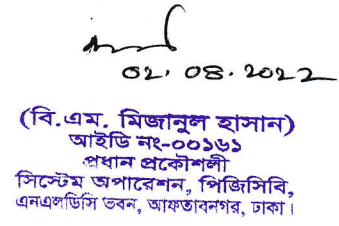 02.08.2022
(বি.এম. মিজানুল হাসান)
আইডি নং-০০১৬১
প্রধান প্রকৌশলী
সিস্টেম অপারেশন, পিজিসিবি,
এনএলডিসি ভবন, আফতাবনগর, ঢাকা।